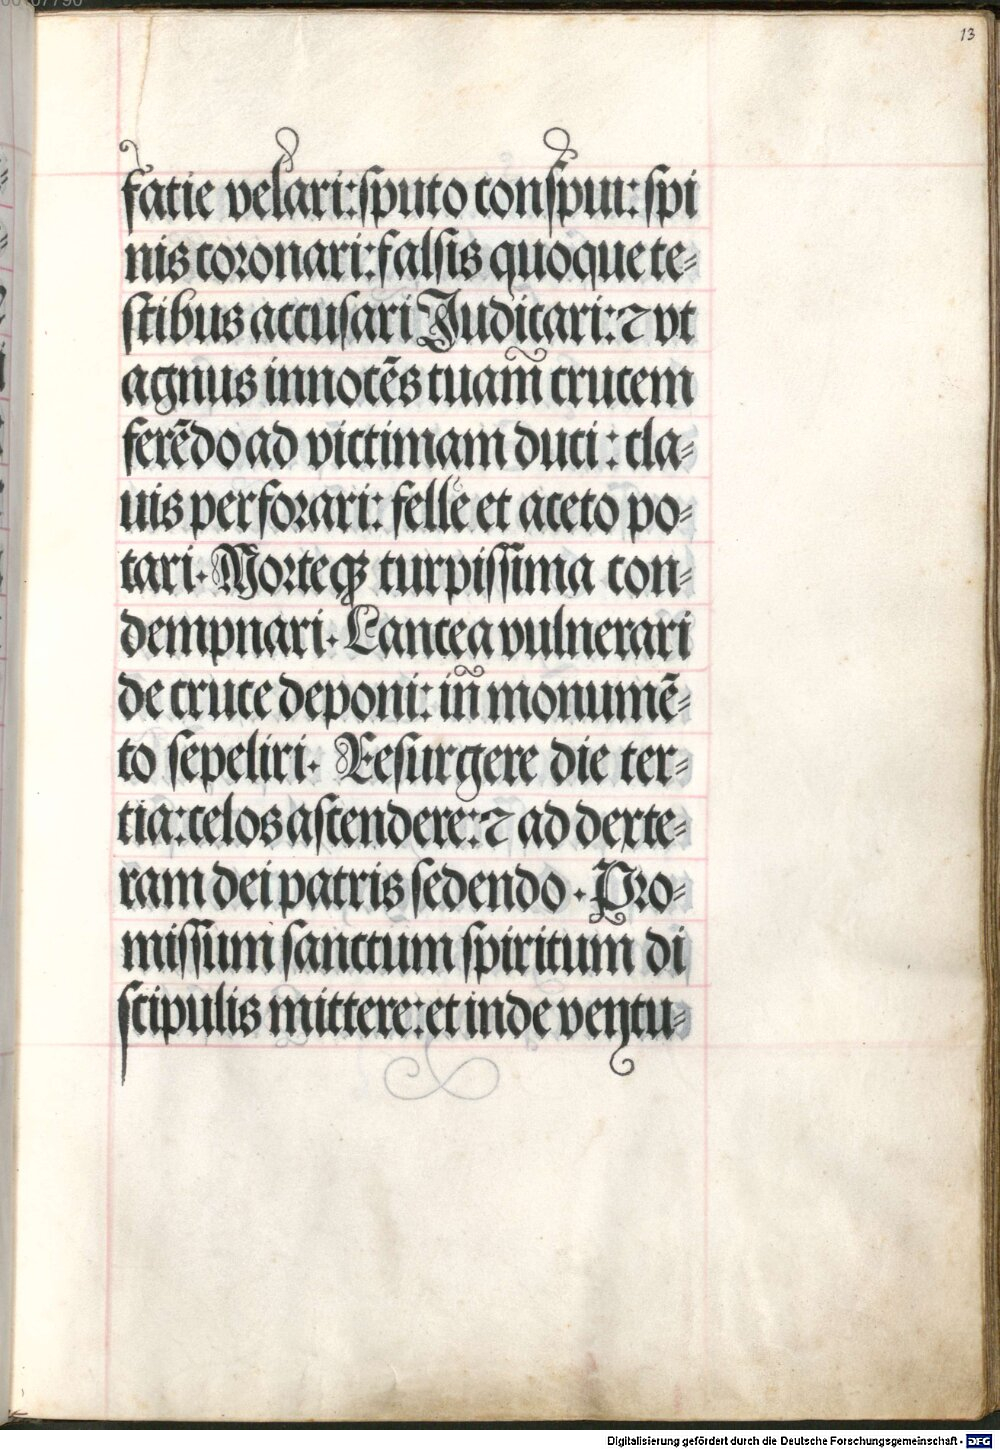 13
facie velari: sputo conspui: spi
nis coronari: falsis quoque te⸗
stibus accusari Judicari: ⁊ vt
agnus innocēs tuam̄ crucem
ferēdo ad victimam duci: cla⸗
uis perforari: felle et aceto po⸗
tari. Morteqꝫ turpissima con⸗
dempnari. Lancea vulnerari
de cruce deponi: in̄ monumē⸗
to sepeliri. Resurgere die ter⸗
tia: celos ascendere: ⁊ ad dexte⸗
ram dei patris sedendo. Pro⸗
missum sanctum spiritum di
scipulis mittere: et inde ventu⸗
Digitalisierung gefördert durch die Deutsche Forschungsgemeinschaft - DFG